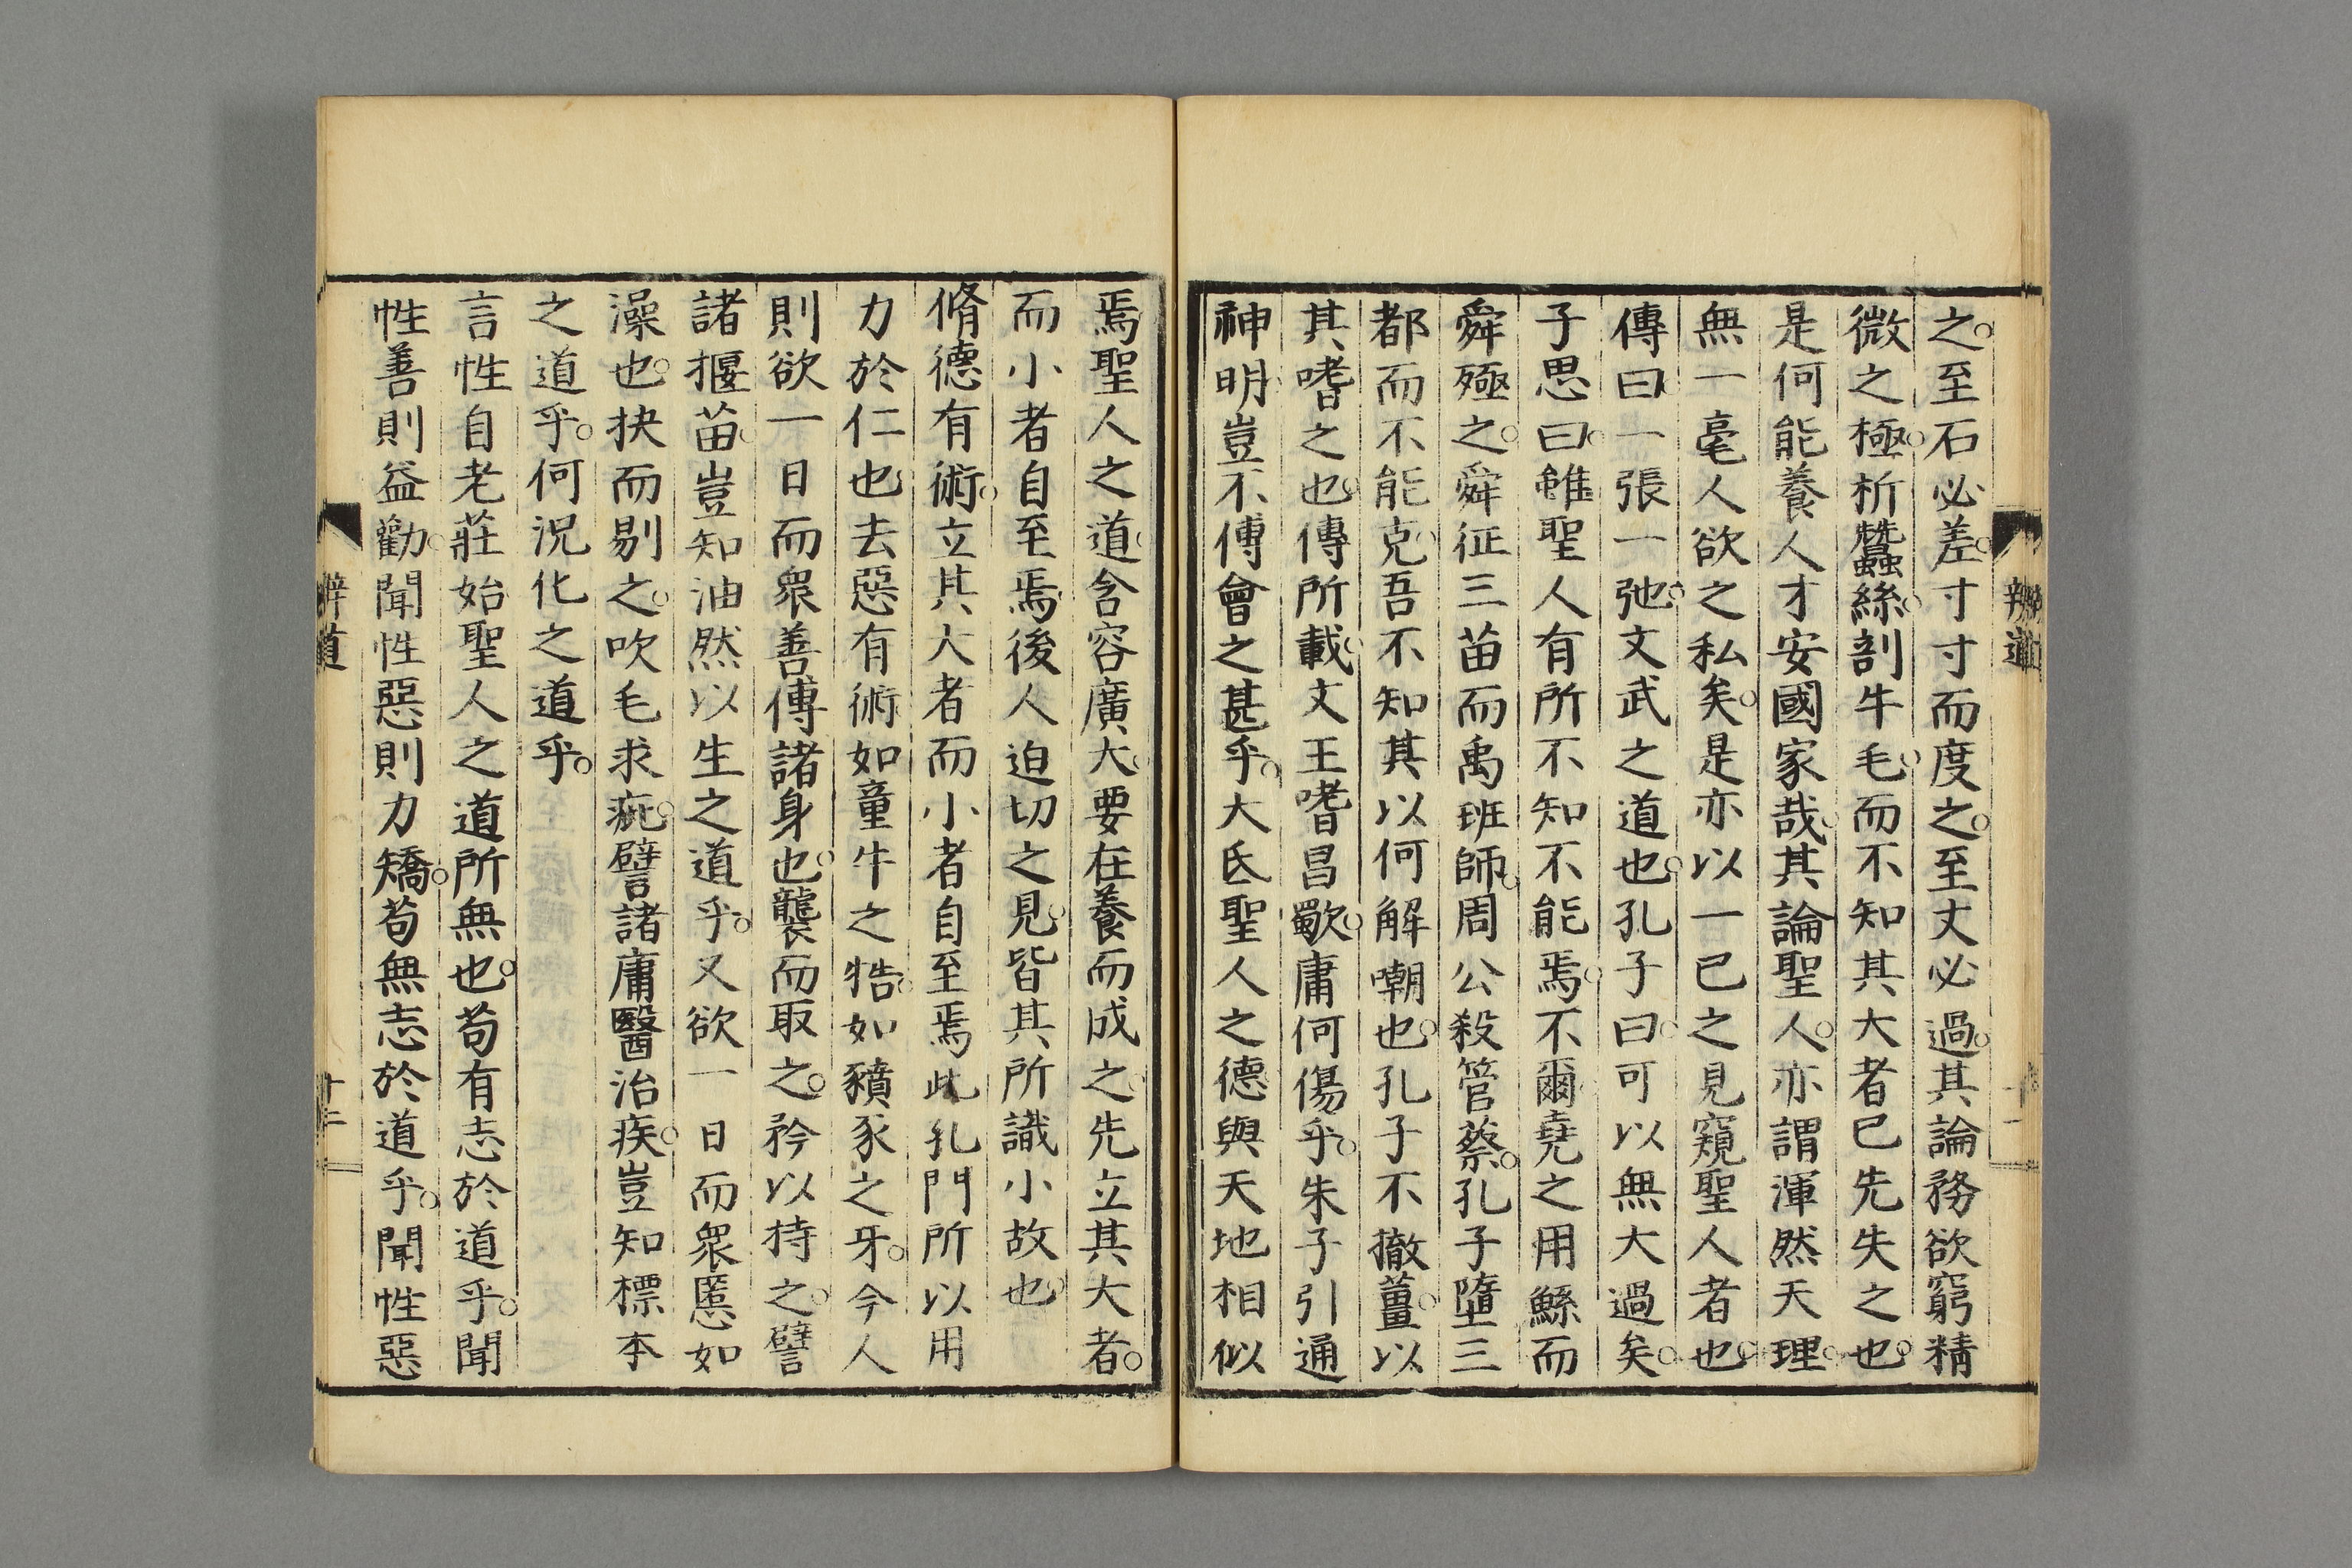 之至石必差寸寸而度之至丈必過其論務欲窮精
微之極析蠶絲剖牛毛而不知其大者已先失之也
是何能養人才安國家哉其論聖人亦謂渾然天理
無一毫人欲之私矣是亦以一己之見窺聖人者也
傳曰一張一弛文武之道也孔子曰可以無大過矣
子思曰雖聖人有所不知不能焉不爾堯之用鯀而
舜殛之舜征三苗而禹班師周公殺管蔡孔子墮三
都而不能克吾不知其以何解嘲也孔子不撤薑以
其嗜之也傳所載文王嗜昌歜庸何傷乎朱子引通
神明豈不傅會之甚乎大氐聖人之德與天地相似
辨道
十一
焉聖人之道含容廣大要在養而成之先立其大者
而小者自至焉後人迫切之見皆其所識小故也
脩德有術立其大者而小者自至焉此孔門所以用
力於仁也去惡有術如童牛之牿如豶豕之牙今人
則欲一日而衆善傅諸身也襲而取之矜以持之譬
諸揠苗豈知油然以生之道乎又欲一日而衆慝如
澡也抉而剔之吹毛求疵譬諸庸醫治疾豈知標本
之道乎何況化之道乎
言性自老莊始聖人之道所無也苟有志於道乎聞
性善則益勸聞性惡則力矯苟無志於道乎聞性惡
辨道
十二